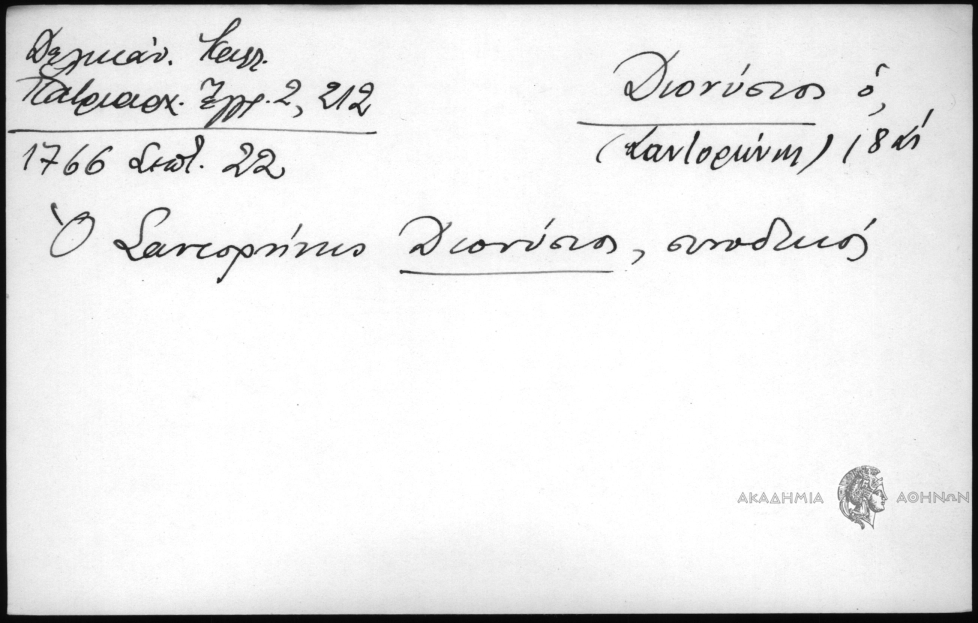 Δελικάν. Καλλ.
Πατριαρχ. Ἔγγρ. 2, 212
1766 Σεπτ. 22
Διονύσιος ὁ,
(Σαντορίνης) 18 αἰ
Ὁ Σαντορήνης Διονύσιος, συνοδικός
ΑΚΑΔΗΜΙΑ ΑΘΗΝΩΝ